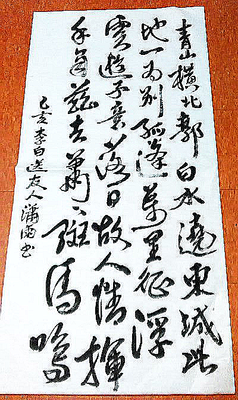 青山橫北郭白水遶東城此
地一為别孤蓬萬里征浮
雲遊子意落日故人情揮
手自茲去蕭〻班馬鳴
己亥李白送友人瀟书